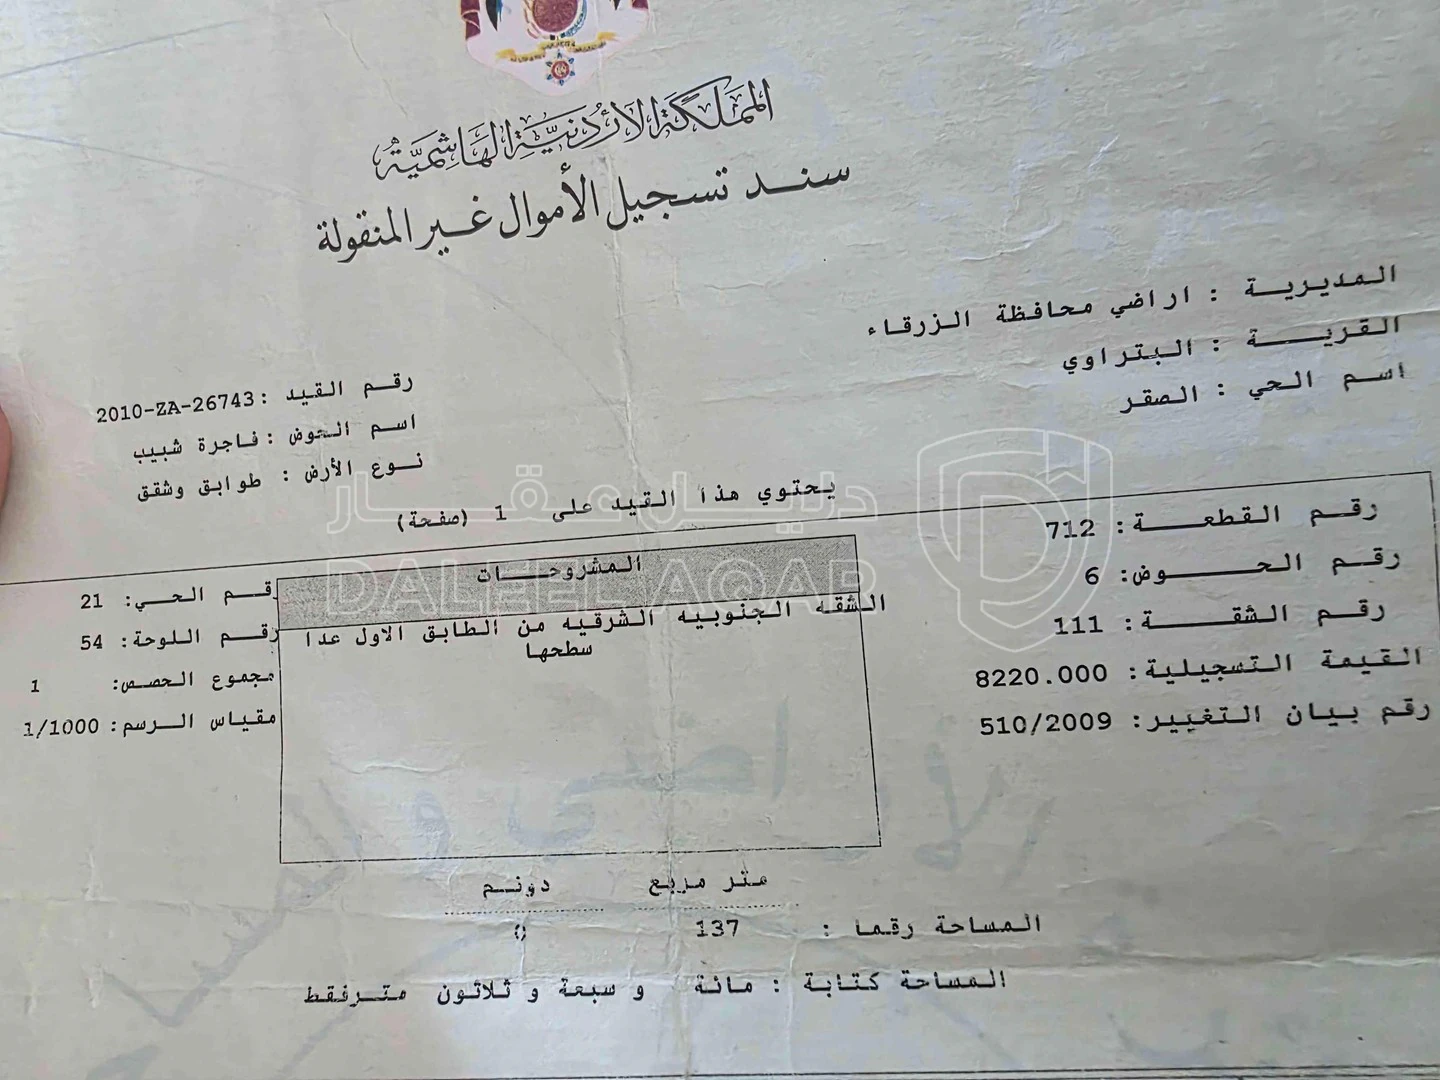 المملكة الأردنية الهاشمية
سند تسجيل الأموال غير المنقولة
المديرية : اراضي محافظة الزرقاء
القرية : البتراوي
اسم الحي : الصقر
رقم القيد : 2010-ZA-26743
اسم الحوض : فاجرة شبيب
نوع الأرض : طوابق وشقق
يحتوي هذا القيد على 1 (صفحة)
دليل عقار
DALEEL AQAR
رقم القطعة : 712
رقم الحوض: 6
رقم الشقة : 111
القيمة التسجيلية : 8220.000
رقم بيان التغيير: 510/2009
المشروحات
الشقه الجنوبيه الشرقيه من الطابق الاول عدا
سطحها
رقم الحي: 21
رقم اللوحة: 54
مجموع الحصص: 1
مقياس الرسم : 1/1000
متر مربع دونم
المساحة رقما : 137 0
المساحة كتابة : مائة و سبعة و ثلاثون مترفقط